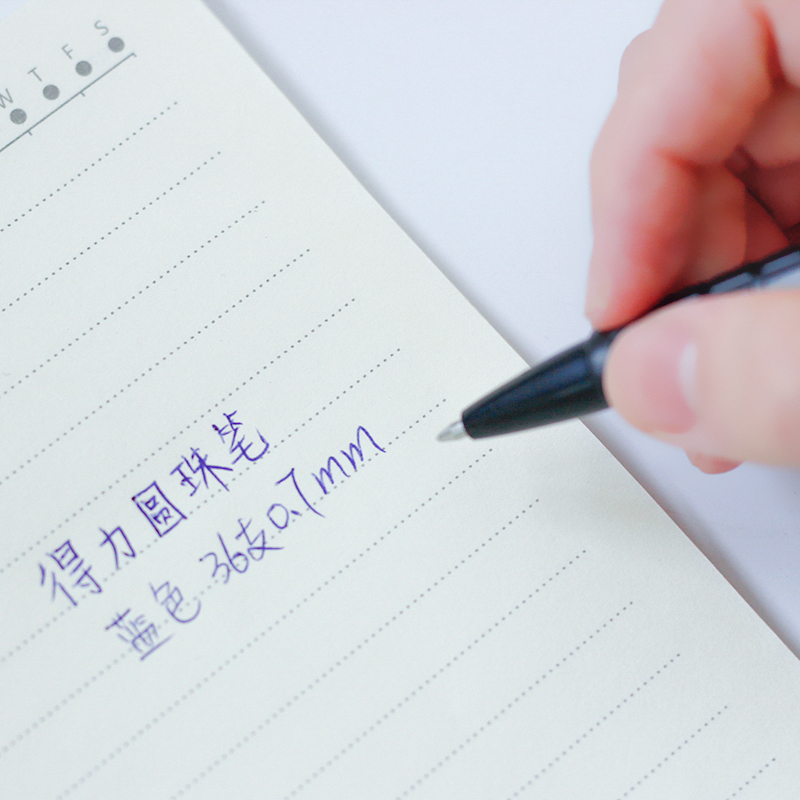 W T F S
得力圆珠笔
蓝色 36支0.7mm